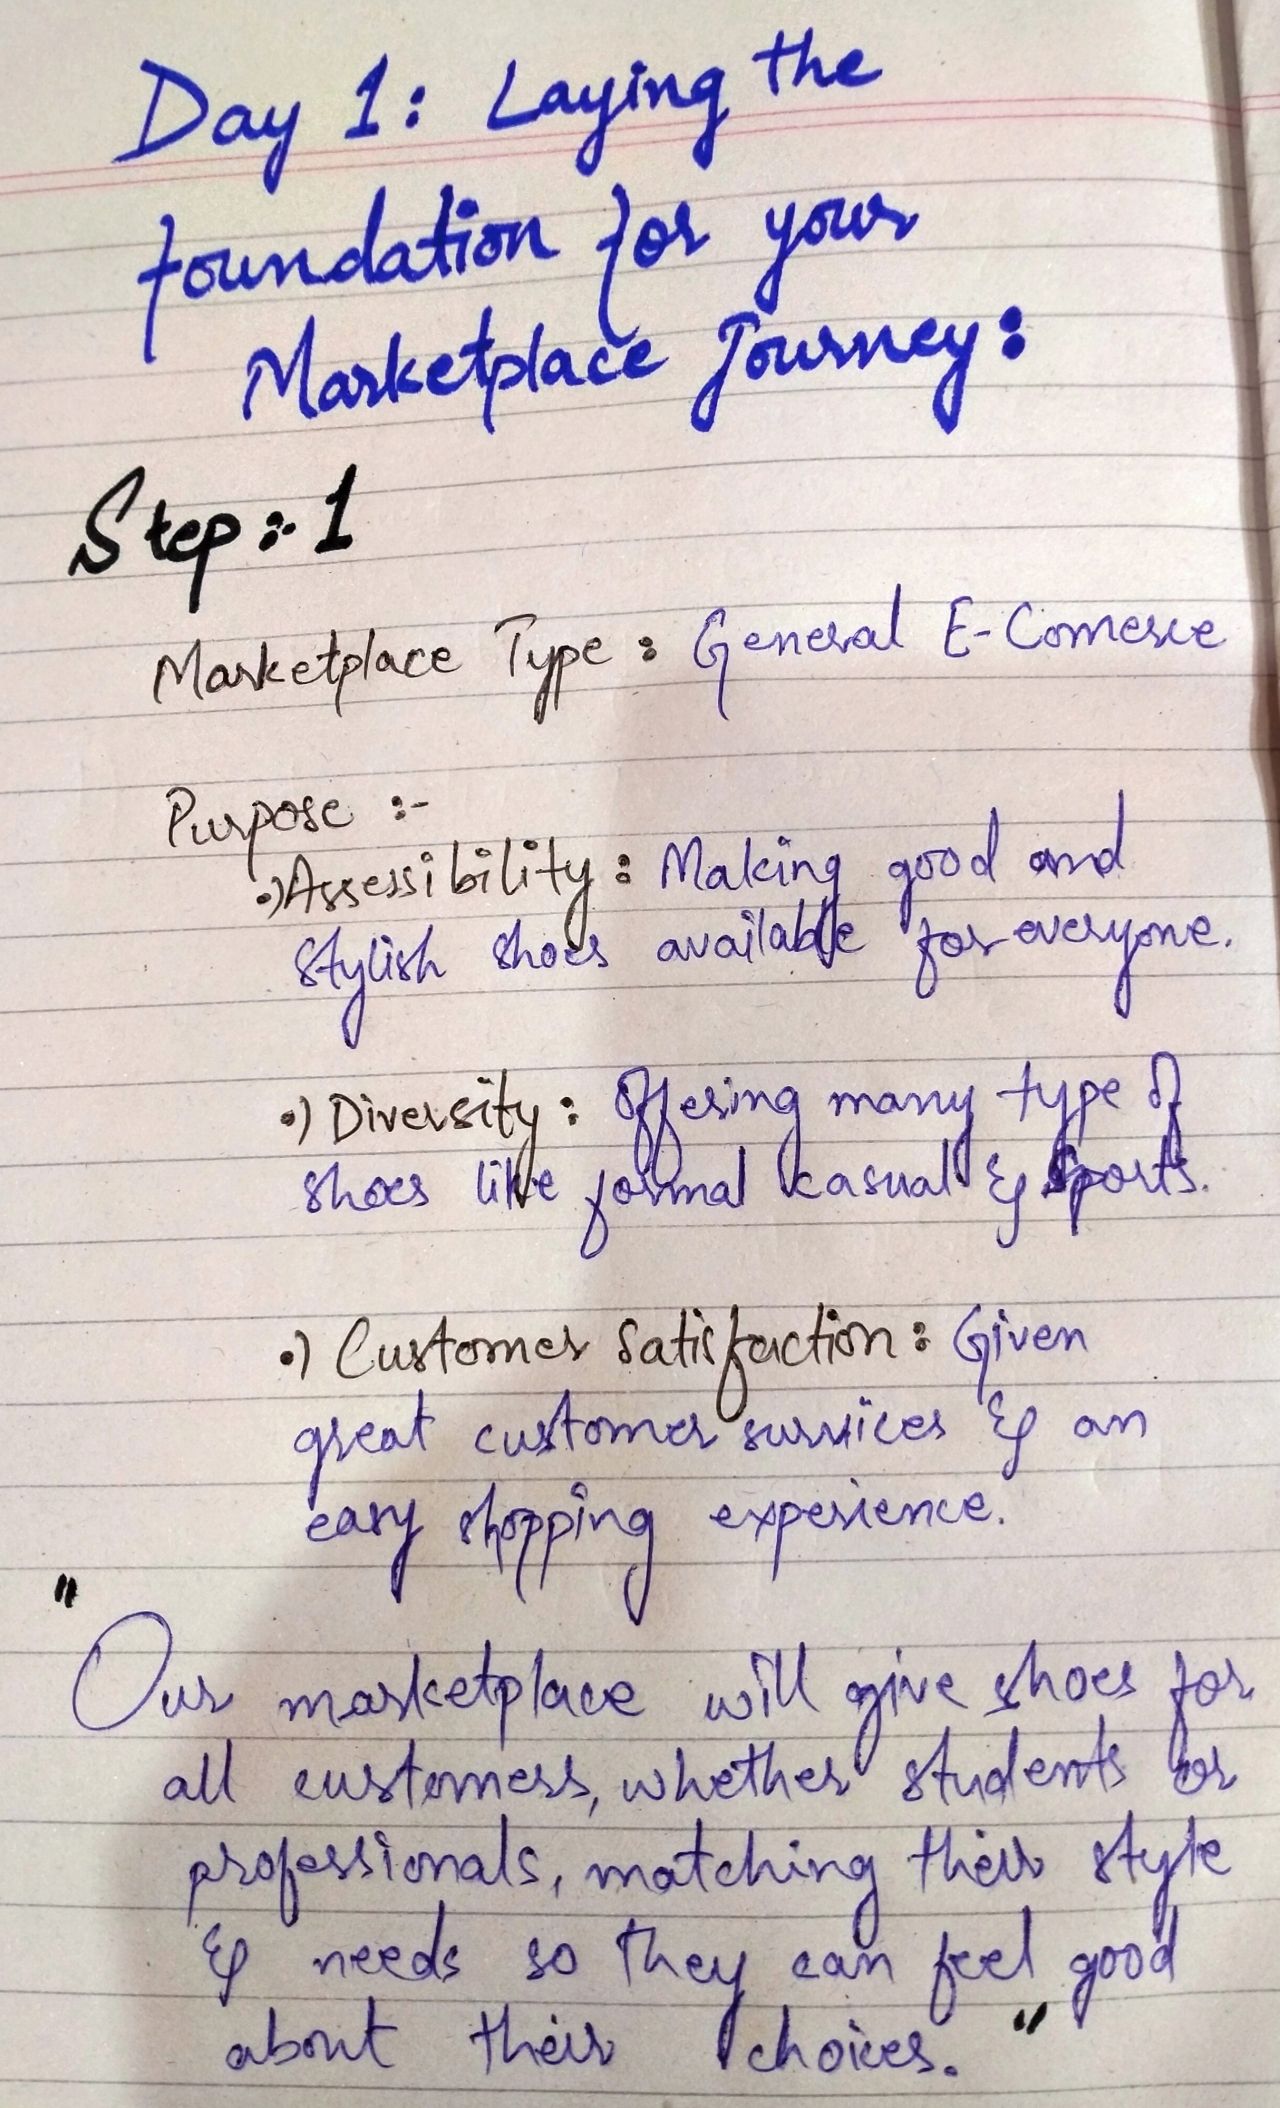 Day 1: Laying the
foundation for your
Marketplace Journey:
Step:- 1
Marketplace Type: General E-Comerce
Purpose :-
•) Assessibility: Making good and
stylish shoes available for everyone.
•) Diversity: Offering many type of
shoes like formal casual & sports.
•) Customer Satisfaction: Given
great customer survices & an
easy shopping experience.
"
Our marketplace will give shoes for
all customers, whether students or
professionals, matching their style
& needs so they can feel good
about their choices."